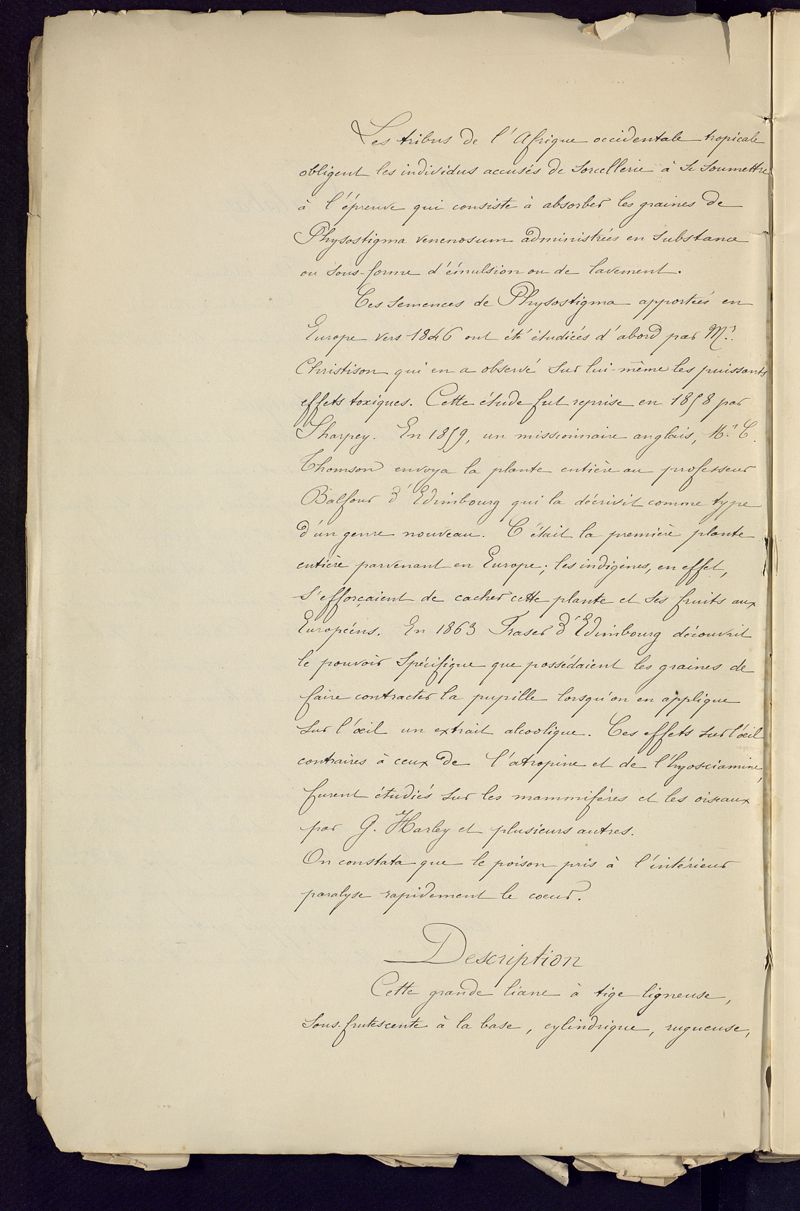 Les tribus de l'Afrique occidentale tropicale
obligent les individus accusés de sorcellerie à se soumettre
à l'épreuve qui consiste à absorber les graines de
Physostigma venenosum administrées en substance
ou sous-forme d'émulsion ou de lavement.
Ces semences de Physostigma apportées en
Europe vers 1846 ont été étudiées d'abord par Mr.
Christison qui en a observé sur lui-même les puissants
effets toxiques. Cette étude fut reprise en 1858 par
Sharpey. En 1859, un missionnaire anglais, Mr. C.
Thomson envoya la plante entière au professeur
Balfour d'Edimbourg qui la décrivit comme type
d'un genre nouveau. C'était la première plante
entière parvenant en Europe; les indigènes, en effet,
s'efforçaient de cacher cette plante et ses fruits aux
Européens. En 1863 Fraser d'Edimbourg découvrit
le pouvoir spécifique que possédaient les graines de
faire contracter la pupille lorsqu'on en applique
sur l'œil un extrait alcoolique. Ces effets sur l'œil
contraires à ceux de l'atropine et de l'hyosciamine,
furent étudiés sur les mammifères et les oiseaux
par G. Harley et plusieurs autres.
On constata que le poison pris à l'intérieur
paralyse rapidement le cœur.
Description
Cette grande liane à tige ligneuse,
sous-frutescente à la base, cylindrique, rugueuse,